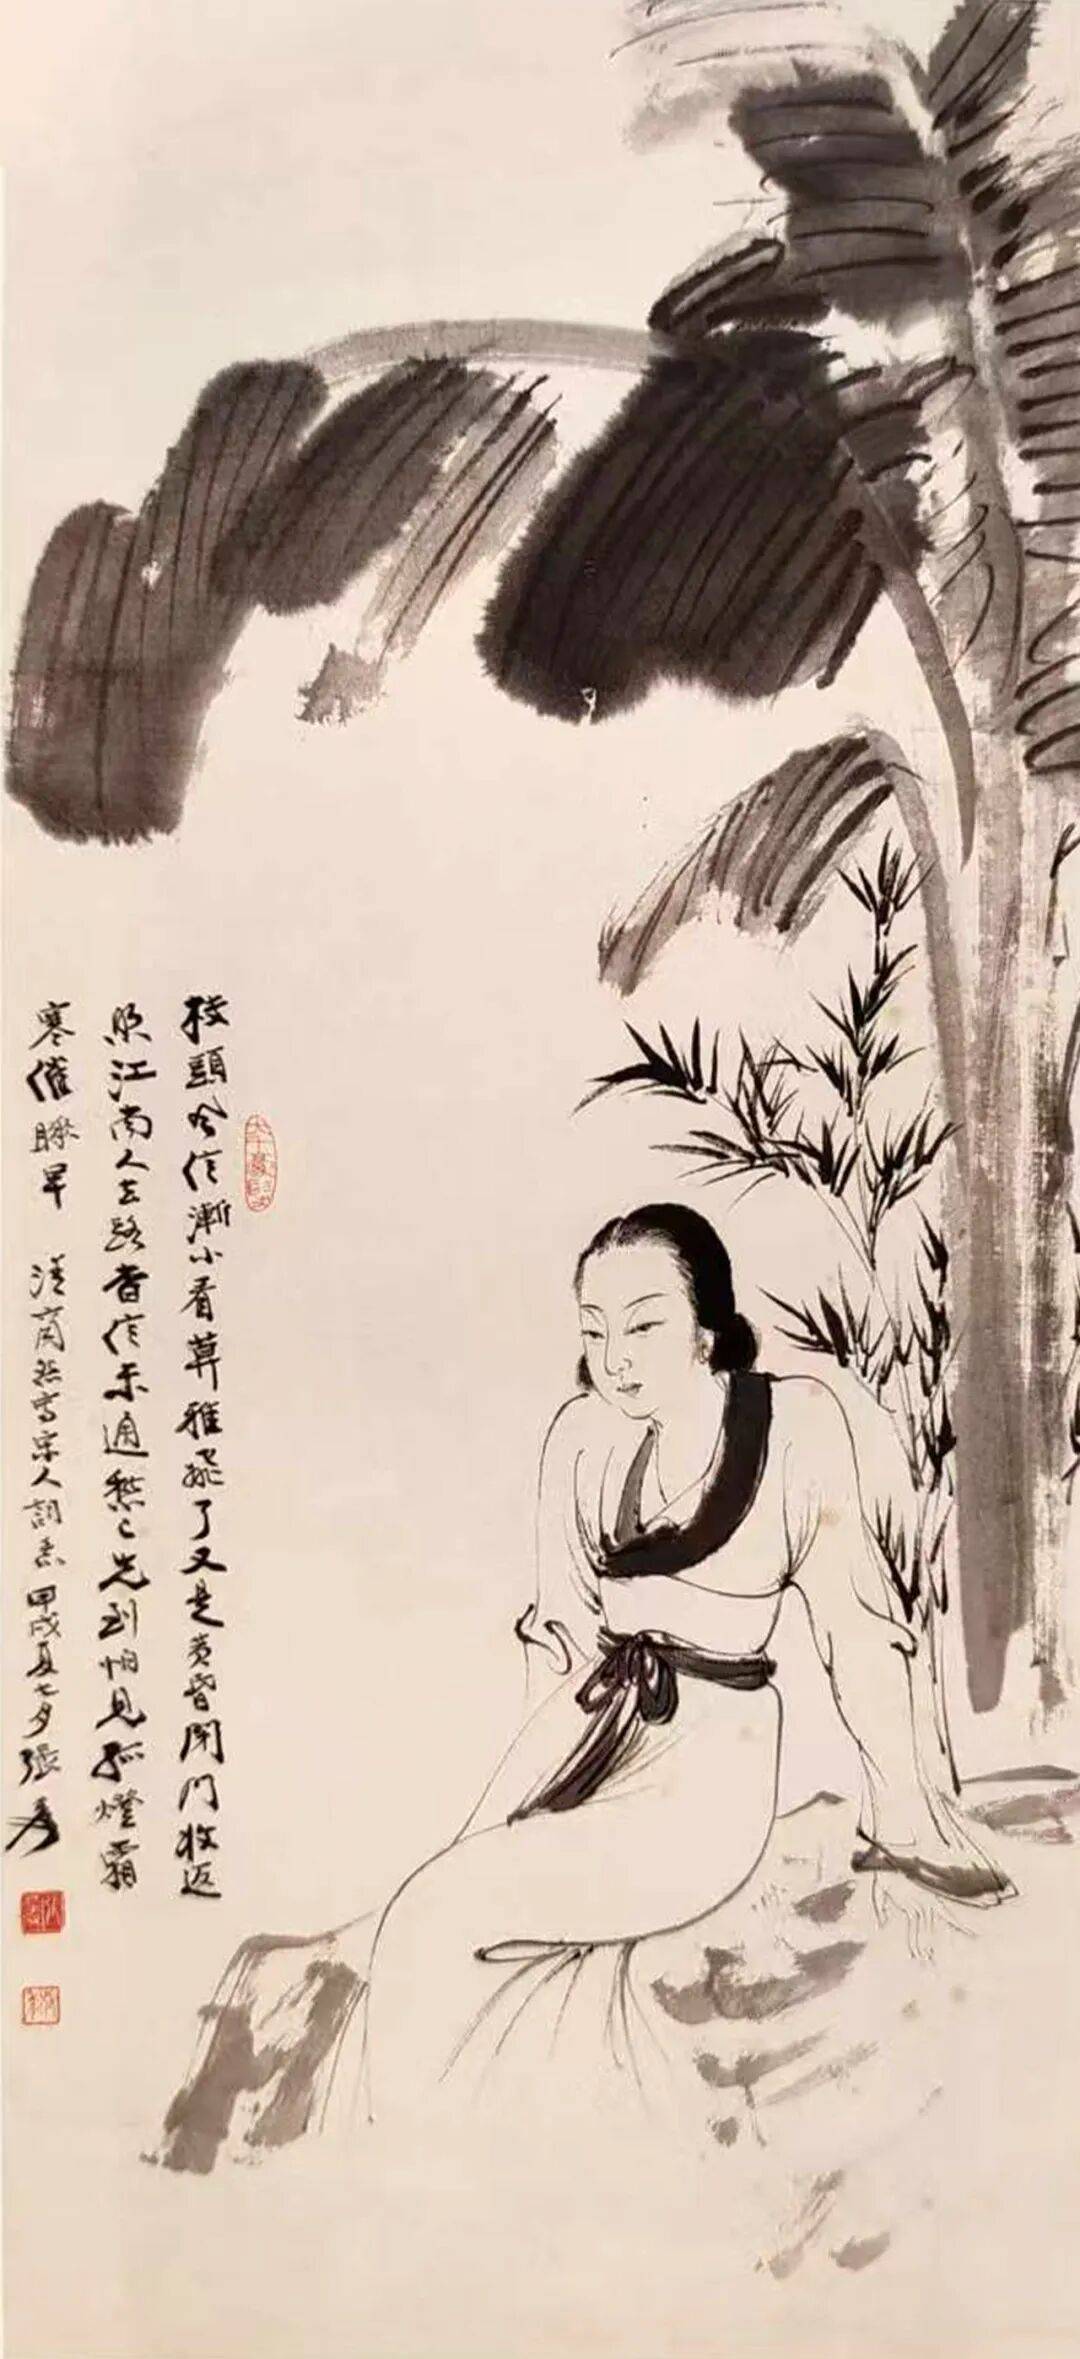 枝頭風信漸小看暮雅飛了又是黃昏閉門收返
照江南人去路杳信未通愁已先到怕見孤燈霜
寒催睡早 清商怨寫宋人詞意甲戌夏七夕張爰